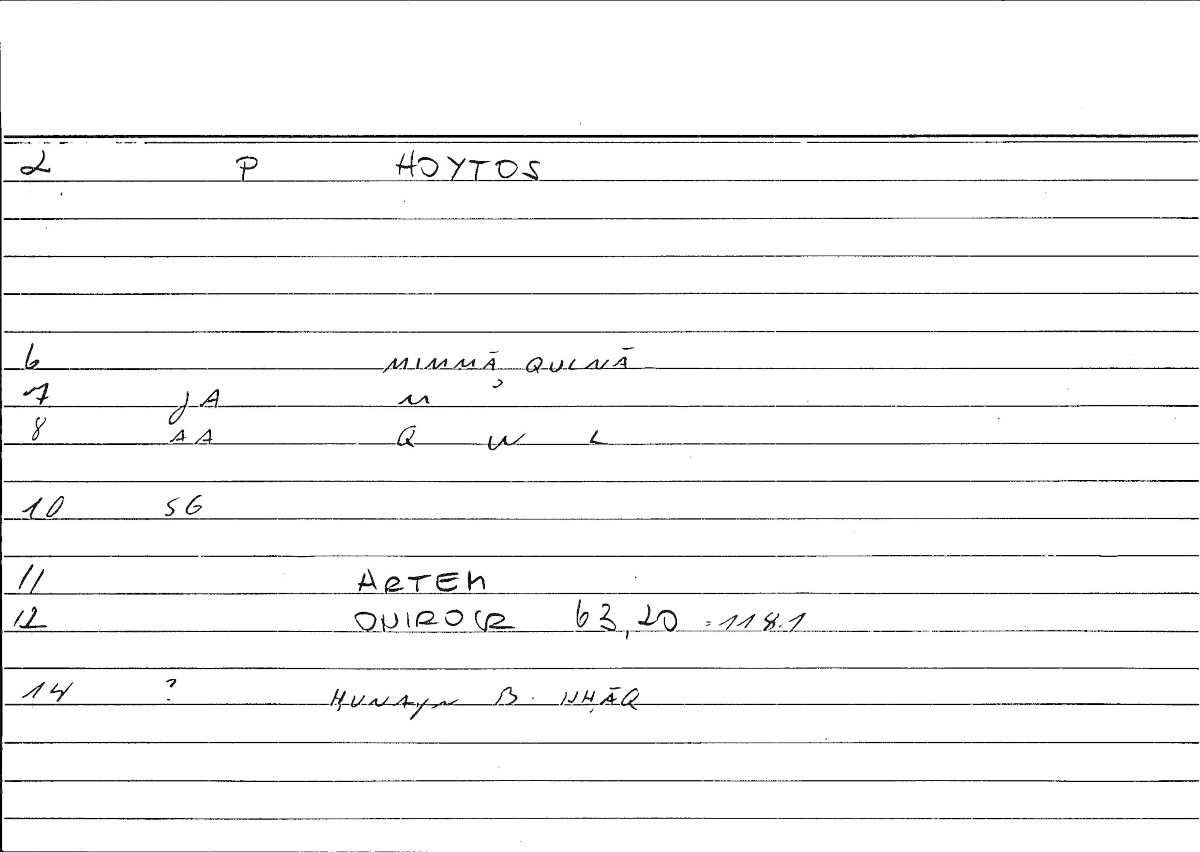 2 P HOYTOS
6 MIMMĀ QULNĀ
7 JA M
8 AA Q W L
10 SG
11 ARTEM
12 ONIROCR 63,20 = 118.1
14 ? ḤUNAYN B. ISḤĀQ